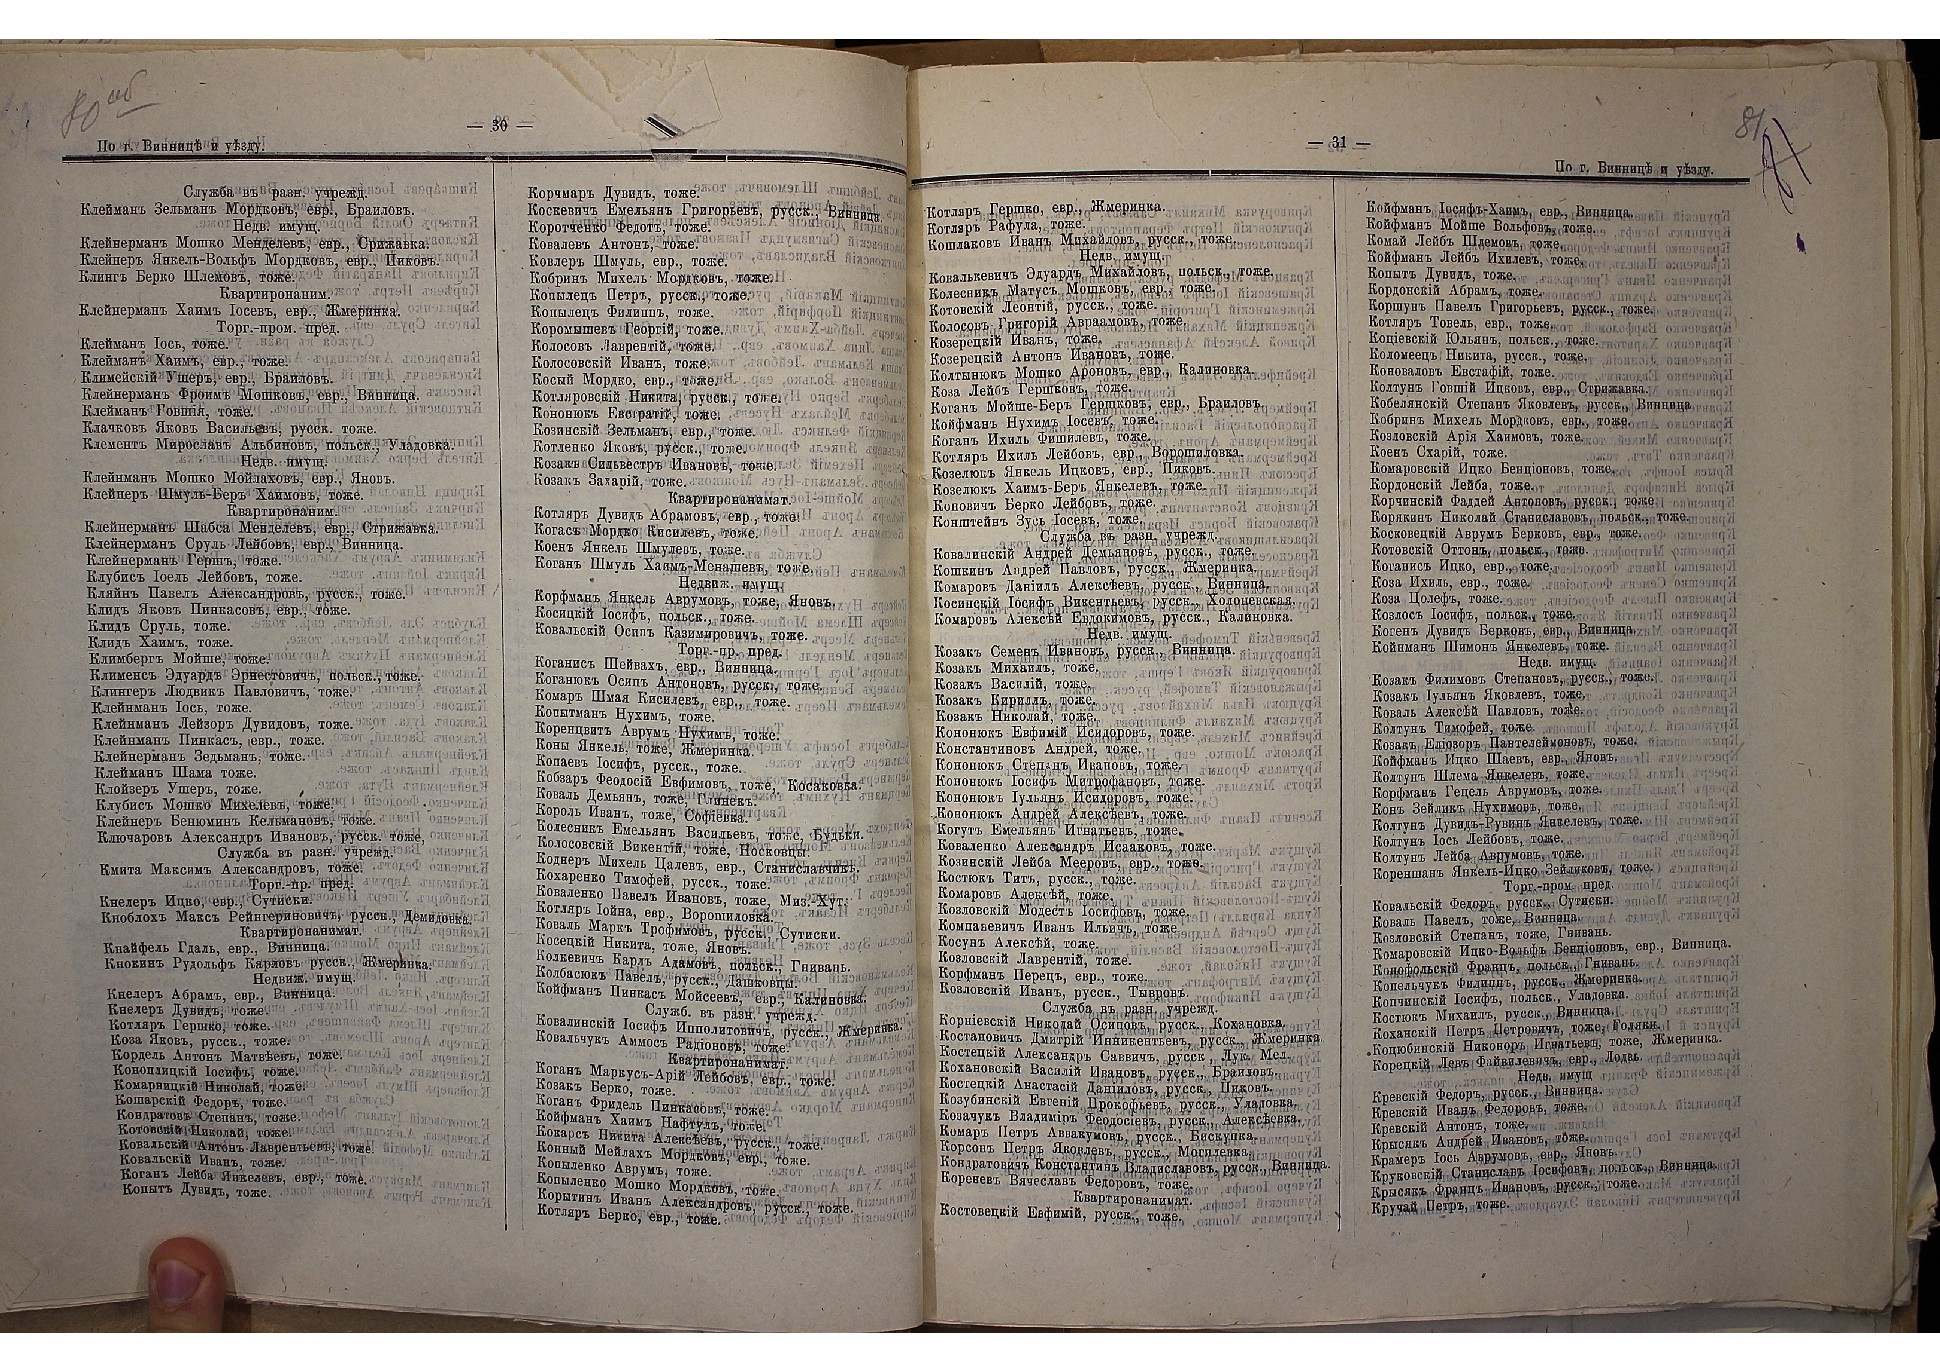 80 об
— 30 —
По г. Винницѣ и уѣзду.
Служба въ разн. учрежд.
Клейманъ Зельманъ Мордковъ, евр., Браиловъ.
Недв. имущ.
Клейнерманъ Мошко Менделевъ, евр., Стрижавка.
Клейнеръ Янкель-Вольфъ Мордковъ, евр., Пиковъ.
Клингъ Берко Шлемовъ, тоже.
Квартиронаним.
Клейнерманъ Хаимъ Іосевъ, евр., Жмеринка.
Торг.-пром. пред.
Клейманъ Іось, тоже.
Клейманъ Хаимъ, евр., тоже.
Климсйскій Ушеръ, евр., Браиловъ.
Клейнерманъ Фроимъ Мошковъ, евр., Винница.
Клейманъ Говшій, тоже.
Клачковъ Яковъ Васильевъ, русск. тоже.
Клементъ Мирославъ Альбиновъ, польск., Уладовка.
Недв. имущ.
Клейнманъ Мошко Мойлаховъ, евр., Яновъ.
Клейнеръ Шмуль-Беръ Хаимовъ, тоже.
Квартиронаним.
Клейнерманъ Шабса Менделевъ, евр., Стрижавка.
Клейнерманъ Сруль Лейбовъ, евр., Винница.
Клейнерманъ Гершъ, тоже.
Клубисъ Іоель Лейбовъ, тоже.
Кляйнъ Павелъ Александровъ, русск., тоже.
Клидъ Яковъ Пинкасовъ, евр., тоже.
Клидъ Сруль, тоже.
Клидъ Хаимъ, тоже.
Климбергъ Мойше, тоже.
Клименсъ Эдуардъ Эрнестовичъ, польск., тоже.
Клингеръ Людвикъ Павловичъ, тоже.
Клейнманъ Іось, тоже.
Клейнманъ Лейзоръ Дувидовъ, тоже.
Клейнманъ Пинкасъ, евр., тоже.
Клейнерманъ Зельманъ, тоже.
Клейманъ Шама тоже.
Клойзеръ Ушеръ, тоже.
Клубисъ Мошко Михелевъ, тоже.
Клейнеръ Бенюминъ Кельмановъ, тоже.
Ключаровъ Александръ Ивановъ, русск. тоже,
Служба въ разн. учрежд.
Кмита Максимъ Александровъ, тоже.
Торг.-пр. пред.
Кнелеръ Ицко, евр., Сутиски.
Кноблохъ Максъ Рейнгериновичъ, русск., Демидовка.
Квартиронанимат.
Кнайфель Гдаль, евр., Винница.
Кнокинъ Рудольфъ Карловъ русск., Жмеринка.
Недвиж. имущ.
Кнелеръ Абрамъ, евр., Винница.
Кнелеръ Дувидъ, тоже.
Котляръ Гершко, тоже.
Коза Яковъ, русск., тоже.
Кордель Антонъ Матвѣевъ, тоже.
Коноплицкій Іосифъ, тоже.
Комарницкій Николай, тоже.
Кошарскій Федоръ, тоже.
Кондратовъ Степанъ, тоже.
Котовскій Николай, тоже.
Ковальскій Антонъ Лаврентьевъ, тоже.
Ковальскій Иванъ, тоже.
Коганъ Лейба Янкелевъ, евр., тоже.
Копытъ Дувидъ, тоже.
Корчмаръ Дувидъ, тоже.
Коскевичъ Емельянъ Григорьевъ, русск., Винница.
Коротченко Федотъ, тоже.
Ковалевъ Антонъ, тоже.
Ковлеръ Шмуль, евр., тоже.
Кобринъ Михель Мордковъ, тоже.
Копылецъ Петръ, русск., тоже.
Копылецъ Филиппъ, тоже.
Коромышевъ Георгій, тоже.
Колосовъ Лаврентій, тоже.
Колосовскій Иванъ, тоже.
Косый Мордко, евр., тоже.
Котляровскій Никита, русск., тоже.
Кононюкъ Евстратій, тоже.
Козинскій Зельманъ, евр., тоже.
Котленко Яковъ, русск., тоже.
Козакъ Сильвестръ Ивановъ, тоже.
Козакъ Захарій, тоже.
Квартиронанимат.
Котляръ Дувидъ Абрамовъ, евр., тоже.
Когасъ Мордко Кисилевъ, тоже.
Коенъ Янкель Шмулевъ, тоже.
Коганъ Шмуль Хаимъ-Менашевъ, тоже.
Недвиж. имущ.
Корфманъ Янкель Аврумовъ, тоже, Яновъ.
Косицкій Іосифъ, польск., тоже.
Ковальскій Осипъ Казимировичъ, тоже.
Торг.-пр. пред.
Коганисъ Шейвахъ, евр., Винница.
Коганюкъ Осипъ Антоновъ, русск., тоже.
Комаръ Шмая Кисилевъ, евр., тоже.
Копытманъ Нухимъ, тоже.
Коренцвитъ Аврумъ Нухимъ, тоже.
Коны Янкель, тоже, Жмеринка.
Копаевъ Іосифъ, русск., тоже.
Кобзаръ Феодосій Евфимовъ, тоже, Косаковка.
Коваль Демьянъ, тоже, Глинскъ.
Король Иванъ, тоже, Софіевка.
Колесникъ Емельянъ Васильевъ, тоже, Бульки.
Колосовскій Викентій, тоже, Носковцы.
Коднеръ Михель Цалевъ, евр., Станиславчикъ.
Кохаренко Тимофей, русск., тоже.
Коваленко Павелъ Ивановъ, тоже, Миз.-Хут.
Котляръ Іойна, евр., Ворошиловка.
Коваль Маркъ Трофимовъ, русск., Сутиски.
Косецкій Никита, тоже, Яновъ.
Колкевичъ Карлъ Адамовъ, польск., Гнивань.
Колбасюкъ Павелъ, русск., Дашковцы.
Койфманъ Пинкасъ Мойсеевъ, евр., Калиновка.
Служб. въ разн. учрежд.
Ковалинскій Іосифъ Ипполитовичъ, русск., Жмеринка.
Ковальчукъ Аммосъ Радіоновъ, тоже.
Квартиронанимат.
Коганъ Маркусъ-Арій Лейбовъ, евр., тоже.
Козакъ Берко, тоже.
Коганъ Фридель Пинкасовъ, тоже.
Койфманъ Хаимъ Нафтулъ, тоже.
Кокарсъ Никита Алексѣевъ, русск., тоже.
Конный Мейлахъ Мордковъ, евр., тоже.
Копыленко Аврумъ, тоже.
Копыленко Мошко Мордковъ, тоже.
Корытинъ Иванъ Александровъ, русск., тоже.
Котляръ Берко, евр., тоже.
81
— 31 —
По г. Винницѣ и уѣзду.
Котляръ Гершко, евр., Жмеринка.
Котляръ Рафула, тоже.
Кошлаковъ Иванъ Михайловъ, русск., тоже.
Недв. имущ.
Ковалькевичъ Эдуардъ Михайловъ, польск., тоже.
Колесникъ Матусъ Мошковъ, евр., тоже.
Котовскій Леонтій, русск., тоже.
Колосовъ Григорій Авраамовъ, тоже.
Козерецкій Иванъ, тоже.
Козерецкій Антонъ Ивановъ, тоже.
Колтынюкъ Мошко Ароновъ, евр., Калиновка.
Коза Лейбъ Гершковъ, тоже.
Коганъ Мойше-Беръ Гершковъ, евр., Браиловъ.
Койфманъ Нухимъ Іосевъ, тоже.
Коганъ Ихиль Фишилевъ, тоже.
Котляръ Ихиль Лейбовъ, евр., Ворошиловка.
Козелюкъ Янкель Ицковъ, евр., Пиковъ.
Козелюкъ Хаимъ-Беръ Янкелевъ, тоже.
Коповичъ Берко Лейбовъ, тоже.
Конштейнъ Зусь Іосевъ, тоже.
Служба въ разн. учрежд.
Ковалинскій Андрей Демьяновъ, русск., тоже.
Кошкинъ Андрей Павловъ, русск., Жмеринка.
Комаровъ Даніилъ Алексѣевъ, русск., Винница.
Косинскій Іосифъ Викентьевъ, русск., Холоневская.
Комаровъ Алексѣй Евдокимовъ, русск., Калиновка.
Недв. имущ.
Козакъ Семенъ Ивановъ, русск., Винница.
Козакъ Михаилъ, тоже.
Козакъ Василій, тоже.
Козакъ Кириллъ, тоже.
Козакъ Николай, тоже.
Кононюкъ Евфимій Исидоровъ, тоже.
Константиновъ Андрей, тоже.
Кононюкъ Степанъ Ивановъ, тоже.
Кононюкъ Іосифъ Митрофановъ, тоже.
Кононюкъ Іульянъ Исидоровъ, тоже.
Кононюкъ Андрей Алексѣевъ, тоже.
Когутъ Емельянъ Игнатьевъ, тоже.
Коваленко Александръ Исааковъ, тоже.
Козинскій Лейба Мееровъ, евр., тоже.
Костюкъ Титъ, русск., тоже.
Комаровъ Алексѣй, тоже.
Козловскій Модестъ Іосифовъ, тоже.
Компаѣевичъ Иванъ Ильичъ, тоже
Косунъ Алексѣй, тоже.
Козловскій Лаврентій, тоже.
Корфманъ Перецъ, евр., тоже
Козловскій Иванъ, русск., Тывровъ.
Служба въ разн. учрежд.
Корніевскій Николай Осиповъ, русск., Кохановка.
Костановичъ Дмитрій Инникентьевъ, русск., Жмеринка
Костецкій Александръ Саввичъ, русск., Лук. Мел.
Кохановскій Василій Ивановъ, русск., Браиловъ.
Костецкій Анастасій Даніиловъ, русск., Пиковъ.
Козубинскій Евгеній Прокофьевъ, русск., Уладовка.
Козачукъ Владиміръ Феодосіевъ, русск., Алексѣевка.
Комаръ Петръ Аввакумовъ, русск., Бискупка.
Корсовъ Петръ Яковлевъ, русск., Могилевка.
Кондратовичъ Константинъ Владиславовъ, русск., Винница.
Кореневъ Вячеславъ Федоровъ, тоже.
Квартиронанимат.
Костовецкій Евфимій, русск., тоже.
Койфманъ Іосифъ-Хаимъ, евр., Винница.
Койфманъ Мойше Вольфовъ, тоже.
Комай Лейбъ Шлемовъ, тоже.
Койфманъ Лейбъ Ихилевъ, тоже.
Копытъ Дувидъ, тоже.
Кордонскій Абрамъ, тоже.
Коршунъ Павелъ Григорьевъ, русск., тоже.
Котляръ Товель, евр., тоже.
Коціевскій Юльянъ, польск., тоже.
Коломеецъ Никита, русск., тоже.
Коноваловъ Евстафій, тоже.
Колтунъ Говшій Ицковъ, евр., Стрижавка.
Кобелянскій Степанъ Яковлевъ, русск., Винница
Кобринъ Михель Мордковъ, евр., тоже.
Козловскій Арія Хаимовъ, тоже.
Коенъ Схарій, тоже.
Комаровскій Ицко Бенціоновъ, тоже.
Кордонскій Лейба, тоже.
Корчинскій Фаддей Антоновъ, русск., тоже
Корякинъ Николай Станиславовъ, польск., тоже.
Косковецкій Аврумъ Берковъ, евр., тоже.
Котовскій Оттонъ, польск., тоже.
Коганисъ Ицко, евр., тоже.
Коза Ихиль, евр., тоже.
Коза Цолефъ, тоже.
Козлосъ Іосифъ, польск., тоже.
Когенъ Дувидъ Берковъ, евр., Винница.
Койнманъ Шимонъ Янкелевъ, тоже.
Недв. имущ.
Козакъ Филимовъ Степановъ, русск., тоже.
Козакъ Іульянъ Яковлевъ, тоже.
Коваль Алексѣй Павловъ, тоже.
Колтунъ Тимофей, тоже.
Козакъ Еліозоръ Пантелеймоновъ, тоже.
Койфманъ Ицко Шаевъ, евр., Яновъ.
Колтунъ Шлема Янкелевъ, тоже.
Корфманъ Гецель Аврумовъ, тоже.
Конъ Зейликъ Нухимовъ, тоже.
Колтунъ Дувидъ-Рувинъ Янкелевъ, тоже.
Колтунъ Іось Лейбовъ, тоже.
Колтунъ Лейба Аврумовъ, тоже.
Кореншанъ Янкель-Ицко Зейликовъ, тоже.
Торг.-пром. пред.
Ковальскій Федоръ, русск., Сутиски.
Коваль Павелъ, тоже, Винница.
Козловскій Степанъ, тоже, Гнивань.
Комаровскій Ицко-Вольфъ Бенціоновъ, евр., Винница.
Конофольскій Францъ, польск., Гнивань.
Копельчукъ Филиппъ, русск., Жмеринка.
Копчинскій Іосифъ, польск., Уладовка.
Костюкъ Михаилъ, русск., Винница.
Коханскій Петръ Петровичъ, тоже, Голяки.
Коцюбинскій Никоноръ Игнатьевъ, тоже, Жмеринка.
Корецкій Левъ Файвилевичъ, евр., Лодзь.
Недв. имущ
Кревскій Федоръ, русск., Винница.
Кревскій Иванъ Федоровъ, тоже.
Кревскій Антонъ, тоже.
Крысякъ Андрей Ивановъ, тоже.
Крамеръ Іось Аврумовъ, евр., Яновъ
Круковскій Станиславъ Іосифовъ, польск., Винница.
Крысякъ Францъ Ивановъ, русск., тоже.
Кручай Петръ, тоже.